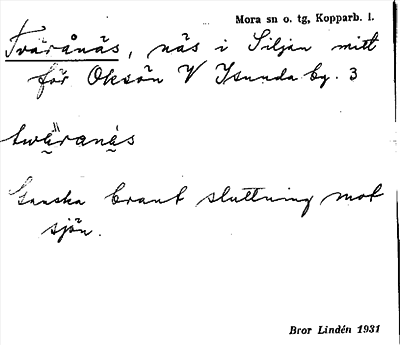 Mora sn o. tg, Kopparb. l.
Tväränäs, näs i Siljan mitt
för Oksön V Isunda by. 3
twäranäs
Ganska brant sluttning mot
sjön.
Bror Lindén 1931